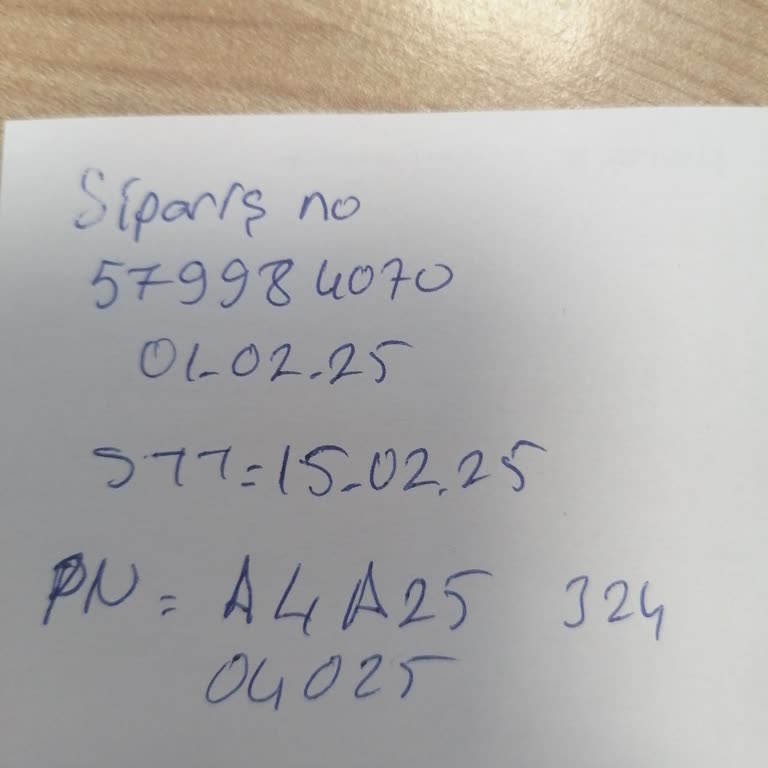 Sipariş no
579984070
01.02.25
STT=15.02.25
PN= A4A25 324
04025